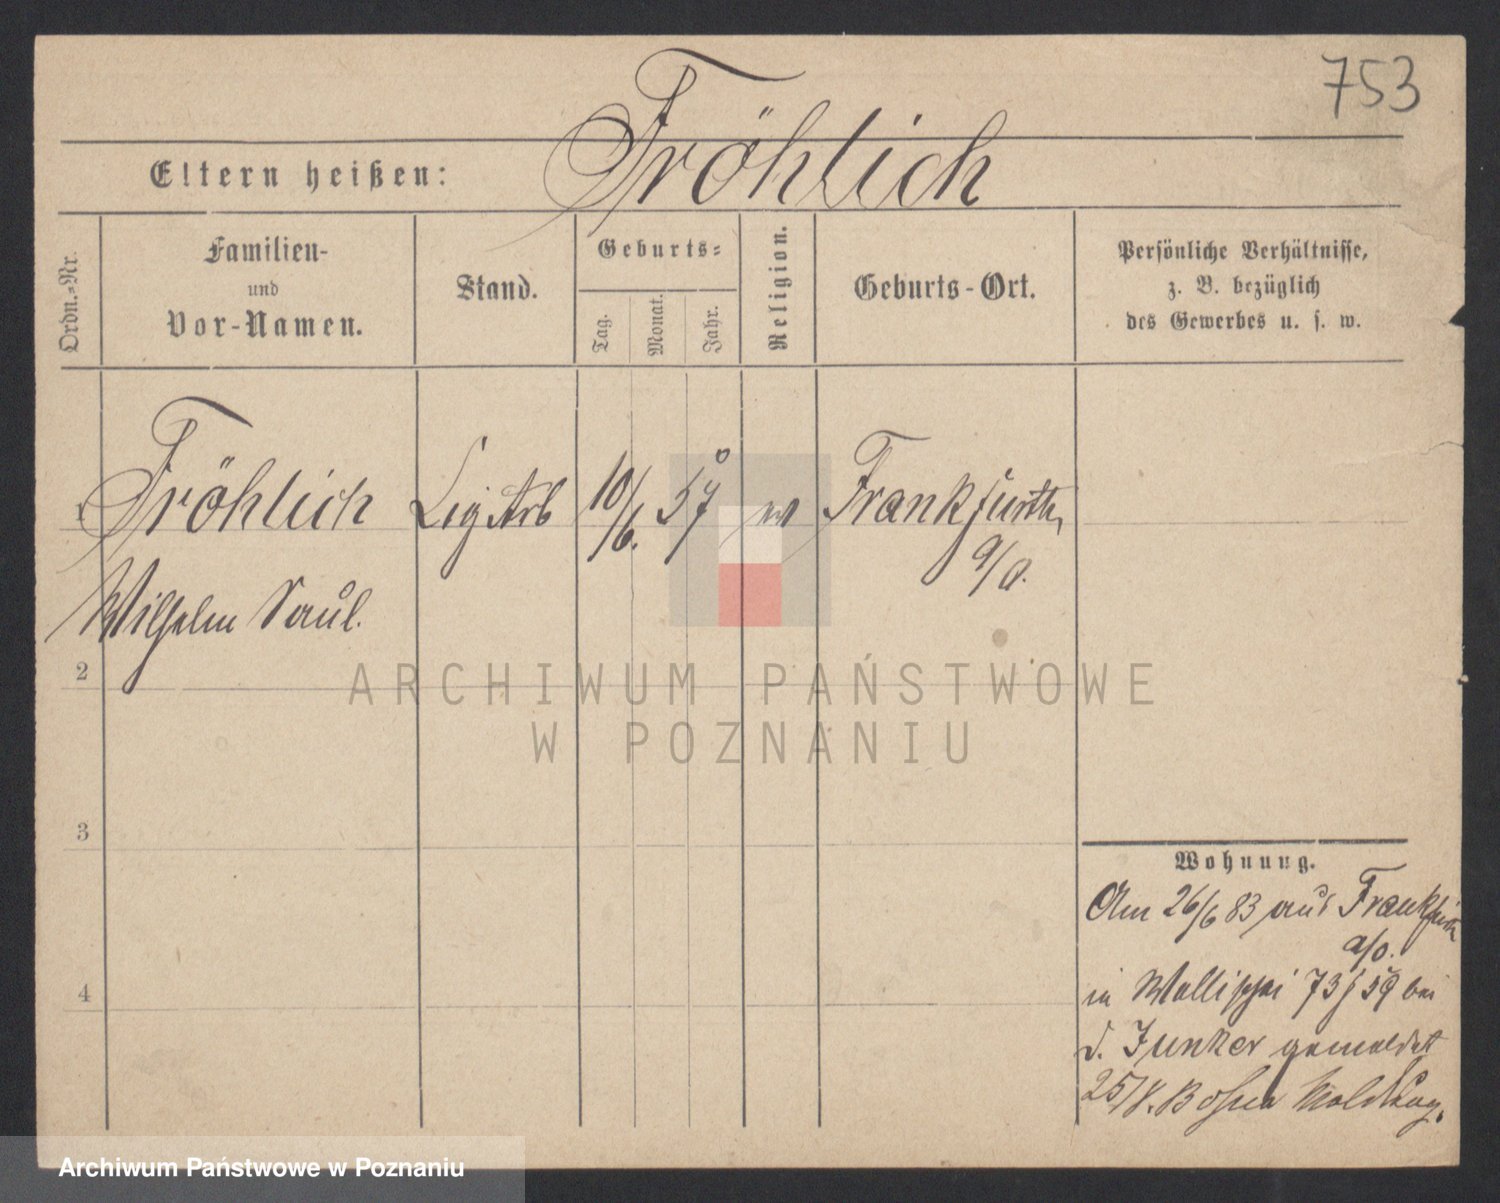 753
Fröhlich
Eltern heißen:
Ordn.=Nr.
Familien-
und
Vor-Namen.
Stand.
Geburts=
Tag.
Monat.
Jahr.
Religion.
Geburts-Ort.
Persönliche Verhältnisse,
z. B. bezüglich
des Gewerbes u. s. w.
1 Fröhlich Zig Arb 10/6. 57 ev Frankfurth
a/O.
Wilhelm Paul.
2
ARCHIWUM PAŃSTWOWE
W POZNANIU
3
Wohnung.
Am 26/6 83 aus Frankfurth
a/O.
4
in Wallischei 73/ 59 bei
d. Junker gemeldet
25/8.
Archiwum Państwowe w Poznaniu